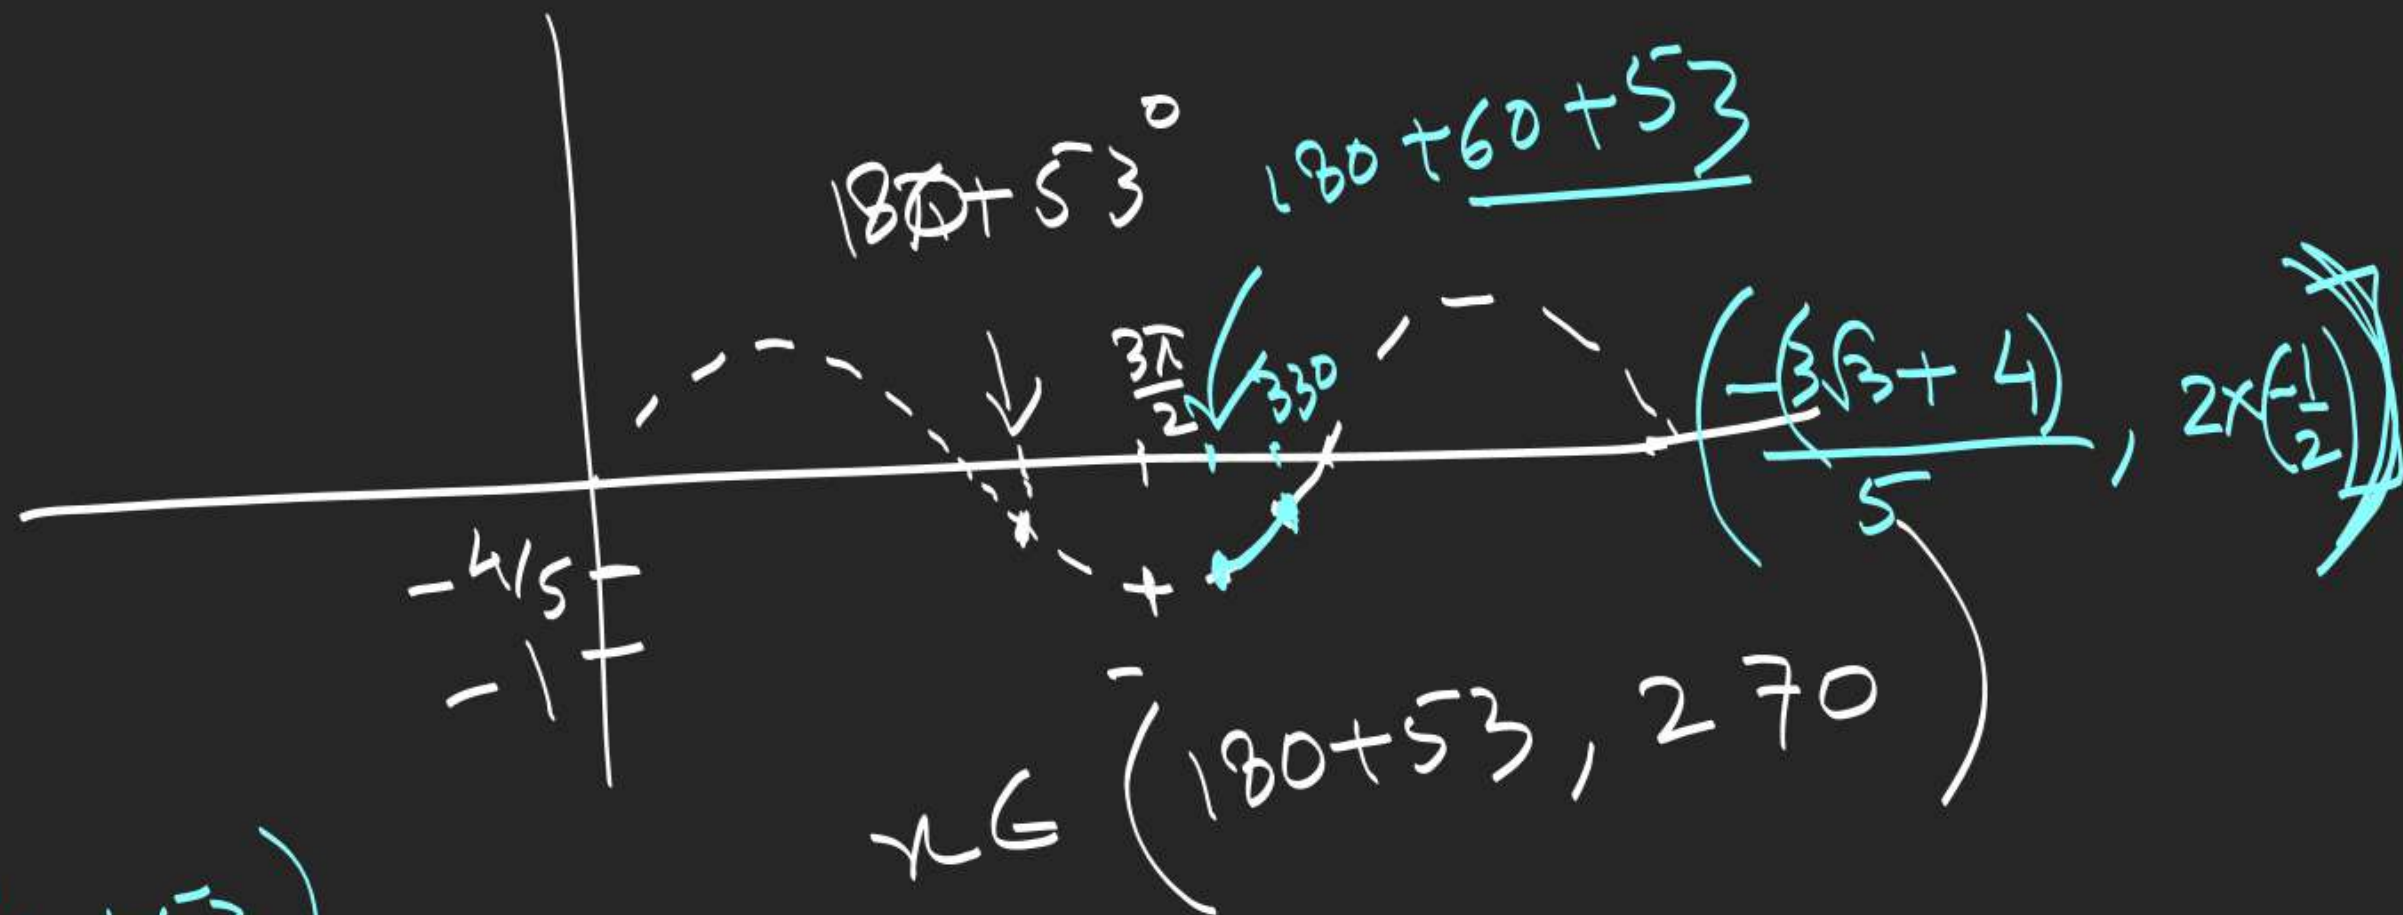 180+53° 180+60+53
3π/2 330 (-(3√3+4)/5, 2×(-1/2))
-4/5
-1
x∈(180+53, 270)